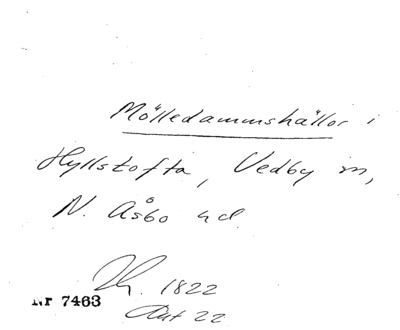 Mölledammshällor i
Hyllstofta, Vedby sn,
N. Åsbo hd
1822
Nr 7463
22